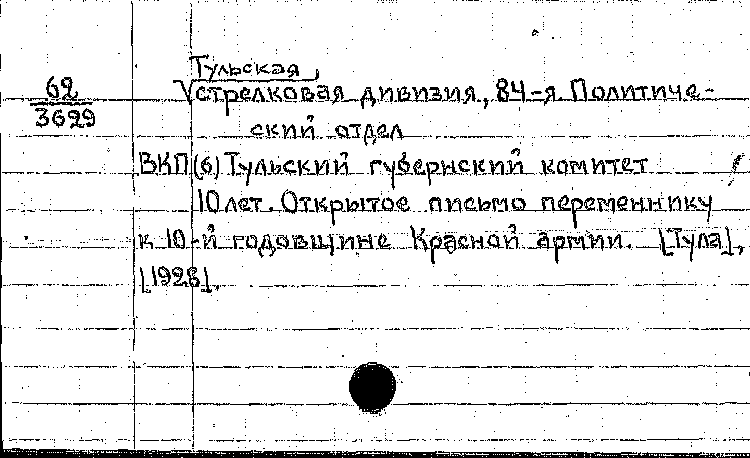 Тульская,
62
3629
стрелковая дивизия, 84-я. Политиче-
ский отдел
ВКП(б) Тульский губернский комитет
10 лет. Открытое письмо переменнику
к 10-й годовщине Красной армии. [Тула],
[1928].